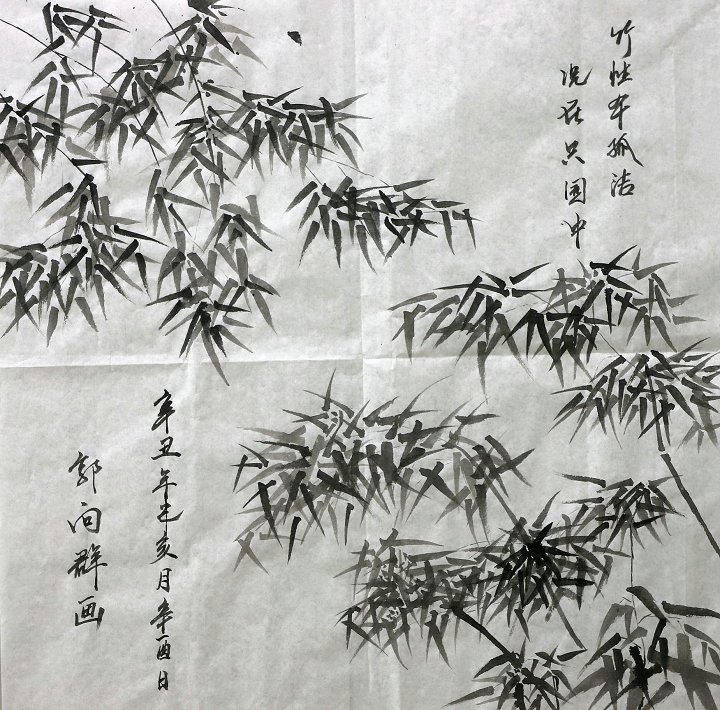 竹性本孤洁
况在只園冲
辛丑年己亥月辛酉日
郭向群画